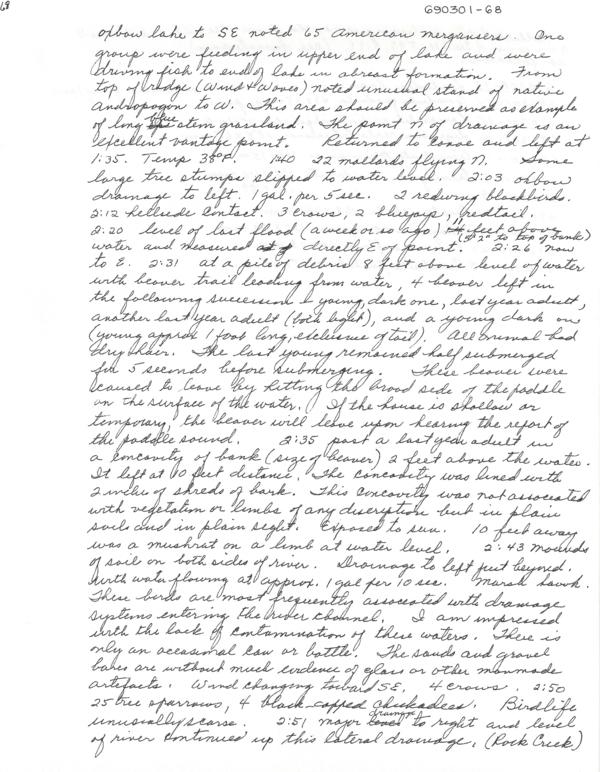 690301-68
oxbow lake to SE noted 65 American mergansers. One
group were feeding in upper end of lake and were
driving fish to end of lake in abreast formation. From
top of ridge (Wind & Waves) noted unusual stand of native
Andropogon to W. This area should be preserved as example
of long blue stem grassland. The point N of drainage is an
excellent vantage point. Returned to canoe and left at
1:35. Temp 38°F. 1:40 22 mallards flying N. Some
large tree stumps slipped to water level. 2:03 oxbow
drainage to left. 1 gal. per 5 sec. 2 redwing blackbirds.
2:12 hillside contact. 3 crows, 2 bluejays, redtail.
2:20 level of last flood (a week or so ago) 11 feet above
(5' 2" to top of bank)
water and measured directly E of point. 2:26 now
to E. 2:31 at a pile of debris 8 feet above level of water
with beaver trail leading from water, 4 beaver left in
the following succession: young, dark one, last year adult,
another last year adult (both light), and a young dark on
(young approx 1 foot long, exclusive of tail). All animal had
dry hair. The last young remained half submerged
for 5 seconds before submerging. These beaver were
caused to leave by hitting the broad side of the paddle
on the surface of the water. If the house is shallow or
temporary, the beaver will leave upon hearing the report of
the paddle sound. 2:35 past a last year adult in
a concavity of bank (size of beaver) 2 feet above the water.
It left at 10 feet distance. The concavity was lined with
2 inches of shreds of bark. This concavity was not associated
with vegetation or limbs of any discription but in plain
soil and in plain sight. Exposed to sun. 10 feet away
was a muskrat on a limb at water level. 2:43 mounds
of soil on both sides of river. Drainage to left just beyond.
with water flowing at approx. 1 gal per 10 sec. Marsh hawk.
These birds are most frequently associated with drainage
systems entering the river channel. I am impressed
with the lack of contamination of these waters. There is
only an occasional can or bottle. The sands and gravel
bares are without much evidence of glass or other manmade
artifacts. Wind changing toward SE. 4 crows. 2:50
25 tree sparrows, 4 black-capped chickadees. Birdlife
unusually scarse. 2:51 major drainage to right and level
of river continued up this lateral drainage. (Rock Creek)